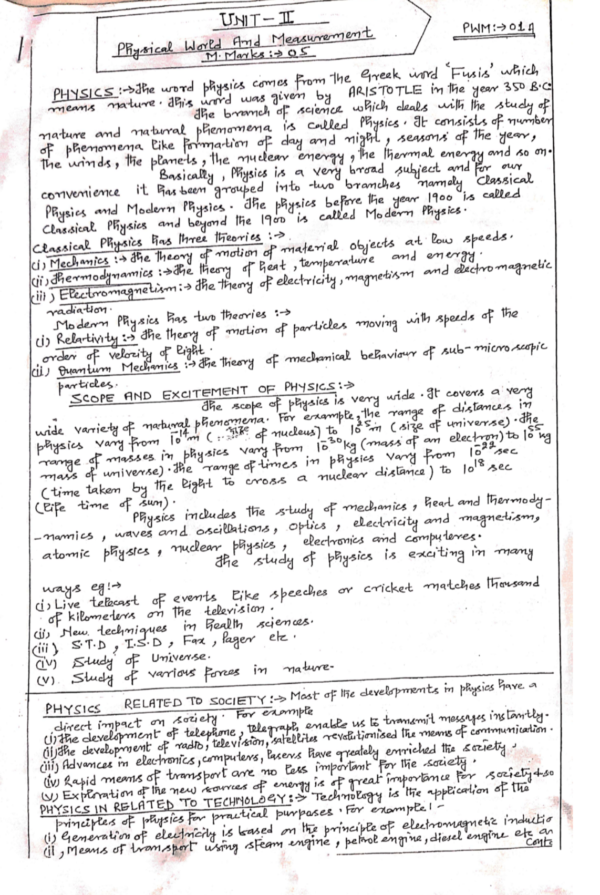 UNIT-II
Physical World And Measurement
M. Marks:→05
PWM:→01A
PHYSICS:→The word physics comes from the Greek word 'Fusis' which
means nature. This word was given by ARISTOTLE in the year 350 B.C.
The branch of science which deals with the study of
nature and natural phenomena is called Physics. It consists of number
of phenomena like formation of day and night, seasons of the year,
the winds, the planets, the nuclear energy, the thermal energy and so on.
Basically, Physics is a very broad subject and for our
convenience it has been grouped into two branches namely Classical
Physics and Modern Physics. The physics before the year 1900 is called
Classical Physics and beyond the 1900 is called Modern Physics.
Classical Physics has three theories:→.
(i) Mechanics:→ The theory of motion of material objects at low speeds.
(ii) Thermodynamics:→The theory of heat, temperature and energy.
(iii) Electromagnetism:→ The theory of electricity, magnetism and electromagnetic
radiation.
Modern Physics has two theories:→
(i) Relativity:→ The theory of motion of particles moving with speeds of the
order of velocity of light.
(ii) Quantum Mechanics:→The theory of mechanical behaviour of sub-microscopic
particles.
SCOPE AND EXCITEMENT OF PHYSICS:→
The scope of physics is very wide. It covers a very
wide variety of natural phenomena. For example, the range of distances in
physics vary from 10⁻¹⁴m (size of nucleus) to 10²⁵m (size of universe). The
range of masses in physics vary from 10⁻³⁰kg (mass of an electron) to 10⁵⁵ kg
mass of universe). The range of times in physics vary from 10⁻²² sec
(time taken by the light to cross a nuclear distance) to 10¹⁸ sec
(life time of sun).
Physics includes the study of mechanics, heat and thermody-
-namics, waves and oscillations, optics, electricity and magnetism,
atomic physics, nuclear physics, electronics and computeres.
The study of physics is exciting in many
ways eg:→
(i) Live telecast of events like speeches or cricket matches thousand
of kilometers on the television.
(ii) New techniques in health sciences.
(iii) S.T.D, I.S.D, Fax, Pager etc.
(iv) Study of Universe.
(v) Study of various forces in nature.
PHYSICS RELATED TO SOCIETY:→ Most of the developments in physics have a
direct impact on society. For example
(i) The development of telephone, telegraph enable us to transmit messages instantly.
(ii) The development of radio, television, satellites revolutionised the means of communication.
(iii) Advances in electronics, computers, lasers have greatly enriched the society.
(iv) Rapid means of transport are no less important for the society.
(v) Exploration of the new sources of energy is of great importance for society & so
PHYSICS IN RELATED TO TECHNOLOGY:→ Technology is the application of the
principles of physics for practical purposes. For example:-
(i) Generation of electricity is based on the principle of electromagnetic inductio
(ii) Means of transport using steam engine, petrol engine, diesel engine etc an
Contd